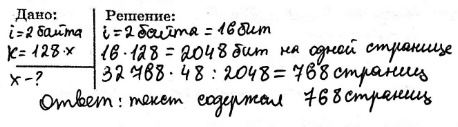 Дано:
i = 2 байта
K = 128 · x
x - ?
Решение:
i = 2 байта = 16 бит
16 · 128 = 2048 бит на одной странице
32 768 · 48 : 2048 = 768 страниц
Ответ: текст содержал 768 страниц